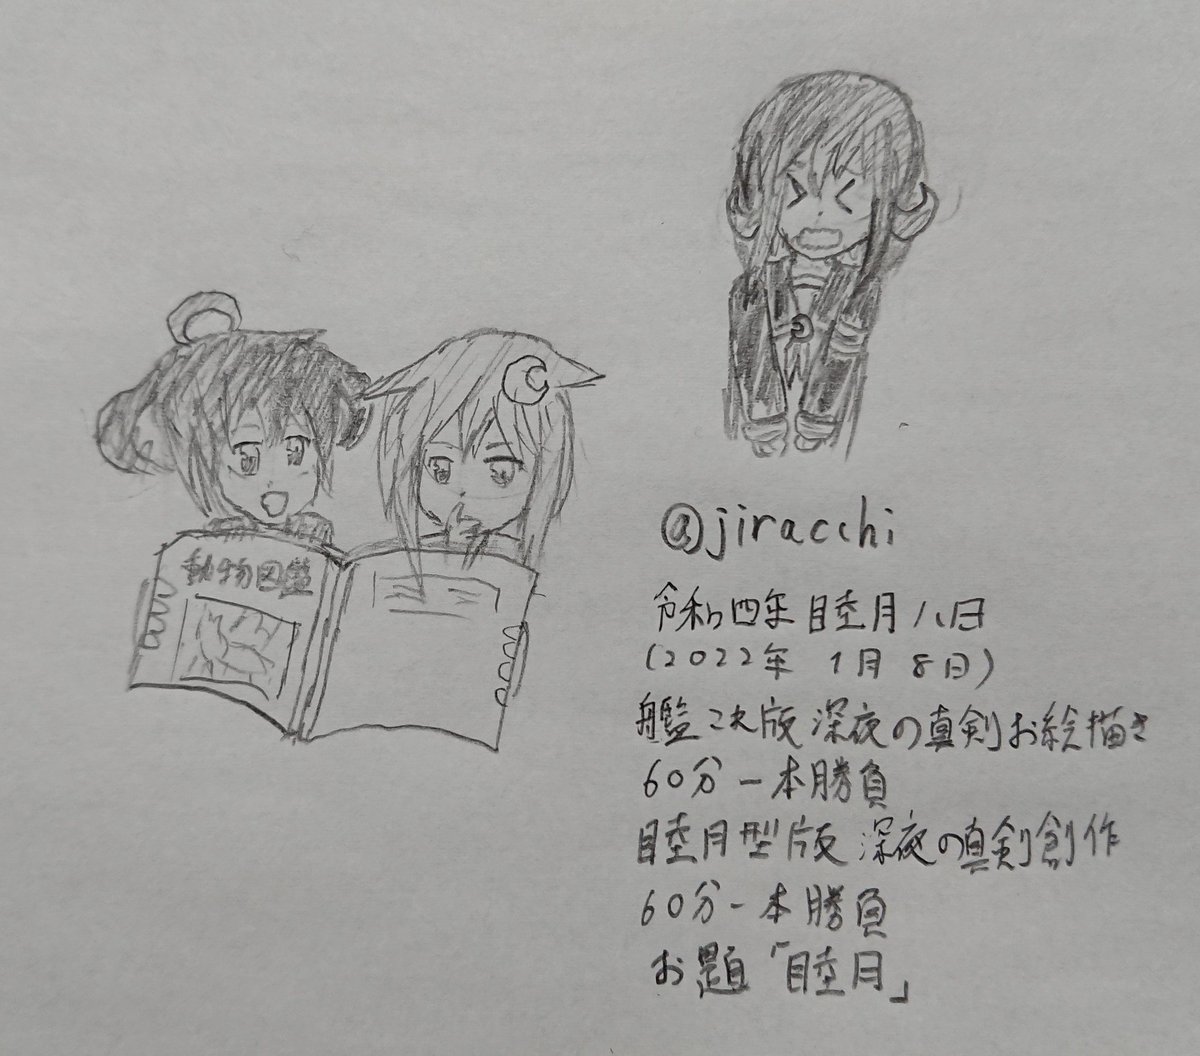 動物図鑑
@jiracchi
令和四年 睦月八日
(2022年 1月 8日)
艦これ版 深夜の真剣お絵描き
60分一本勝負
睦月型版 深夜の真剣創作
60分一本勝負
お題「睦月」